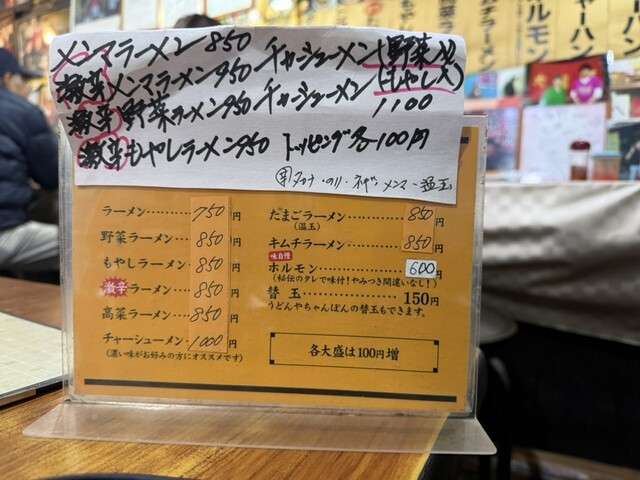 メンマラーメン 850
激辛メンマラーメン 950
激辛野菜ラーメン 950
激辛もやしラーメン 950
チャーシューメン(野菜入)
チャーシューメン(もやし入)
1100
トッピング各100円
タカナ・のり・ネギ メンマ・温玉
ラーメン………750円
野菜ラーメン……850円
もやしラーメン…850円
激辛ラーメン……850円
高菜ラーメン……850円
チャーシューメン…1000円
(濃い味がお好みの方にオススメです)
たまごラーメン………850円
(温玉)
キムチラーメン………850円
味自慢
ホルモン………600円
(秘伝のタレで味付!やみつき間違いなし!)
替玉………150円
うどんやちゃんぽんの替玉もできます。
各大盛は100円増
ホルモン